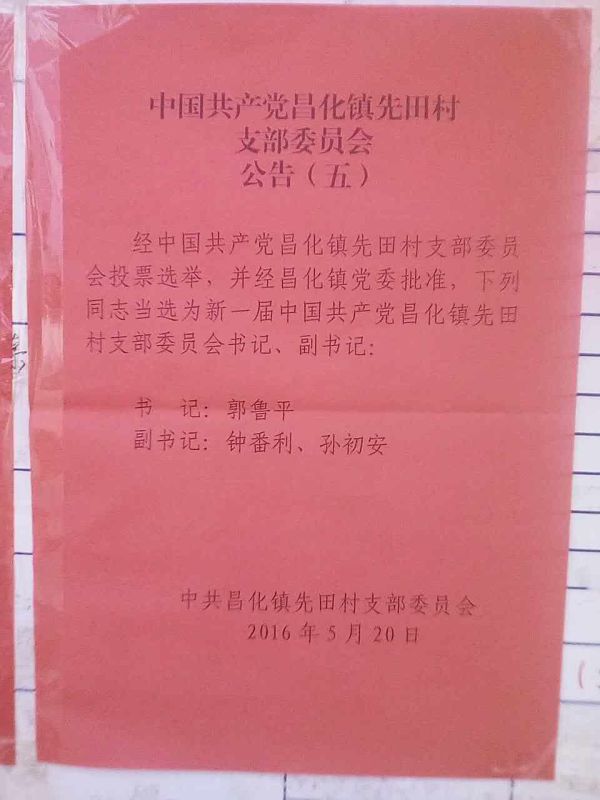 中国共产党昌化镇先田村
支部委员会
公告（五）
经中国共产党昌化镇先田村支部委员
会投票选举，并经昌化镇党委批准，下列
同志当选为新一届中国共产党昌化镇先田
村支部委员会书记、副书记：
书　记：郭鲁平
副书记：钟番利、孙初安
中共昌化镇先田村支部委员会
2016年5月20日